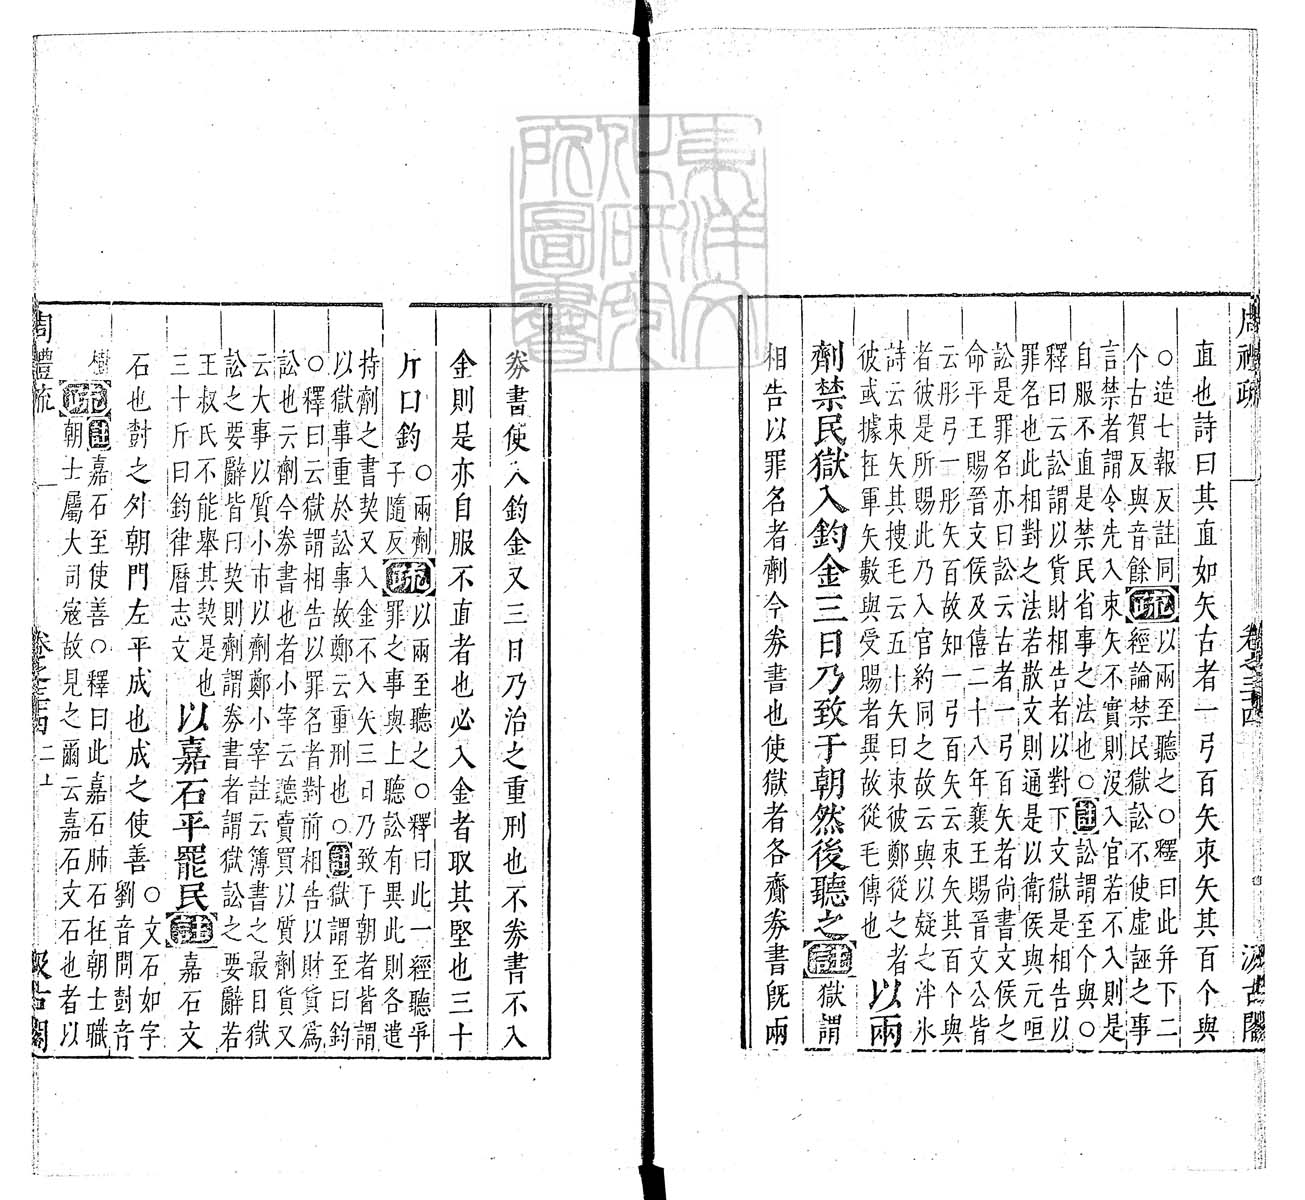 周禮疏 卷之三十四 汲古閣
直也詩曰其直如矢古者一弓百矢束矢其百个與
○造七報反註同
个古賀反與音餘
疏
以兩至聽之○釋曰此并下二
經論禁民獄訟不使虛誣之事
言禁者謂令先入束矢不實則沒入官若不入則是
自服不直是禁民省事之法也○註訟謂至个與○
釋曰云訟謂以貨財相告者以對下文獄是相告以
罪名也此相對之法若散文則通是以衛侯與元咺
訟是罪名亦曰訟云古者一弓百矢者尚書文侯之
命平王賜晉文侯及僖二十八年襄王賜晉文公皆
云彤弓一彤矢百故知一弓百矢云束矢其百个與
者彼是所賜此乃入官約同之故云與以疑之泮水
詩云束矢其搜毛云五十矢曰束彼鄭從之者
彼或據在軍矢數與受賜者異故從毛傳也
以兩
劑禁民獄入鈞金三日乃致于朝然後聽之註獄謂
相告以罪名者劑今券書也使獄者各齎券書既兩
券書使入鈞金又三日乃治之重刑也不券書不入
金則是亦自服不直者也必入金者取其堅也三十
斤曰鈞
○兩劑
子隨反
疏
以兩至聽之○釋曰此一經聽爭
罪之事與上聽訟有異此則各遣
持劑之書契又入金不入矢三日乃致于朝者皆謂
以獄事重於訟事故鄭云重刑也○註獄謂至曰鈞
○釋曰云獄謂相告以罪名者對前相告以財貨為
訟也云劑今券書也者小宰云聽賣買以質劑貨又
云大事以質小市以劑鄭小宰註云簿書之最目獄
訟之要辭皆曰契則劑謂券書者謂獄訟之要辭若
王叔氏不能舉其契是也
三十斤曰鈞律曆志文
以嘉石平罷民註嘉石文
石也尌之外朝門左平成也成之使善
○文石如字
劉音問尌音
樹
疏
註嘉石至使善○釋曰此嘉石肺石在朝士職
朝士屬大司寇故見之爾云嘉石文石也者以
周禮疏 卷之三十四 二上 汲古閣
東洋文化研究所圖書